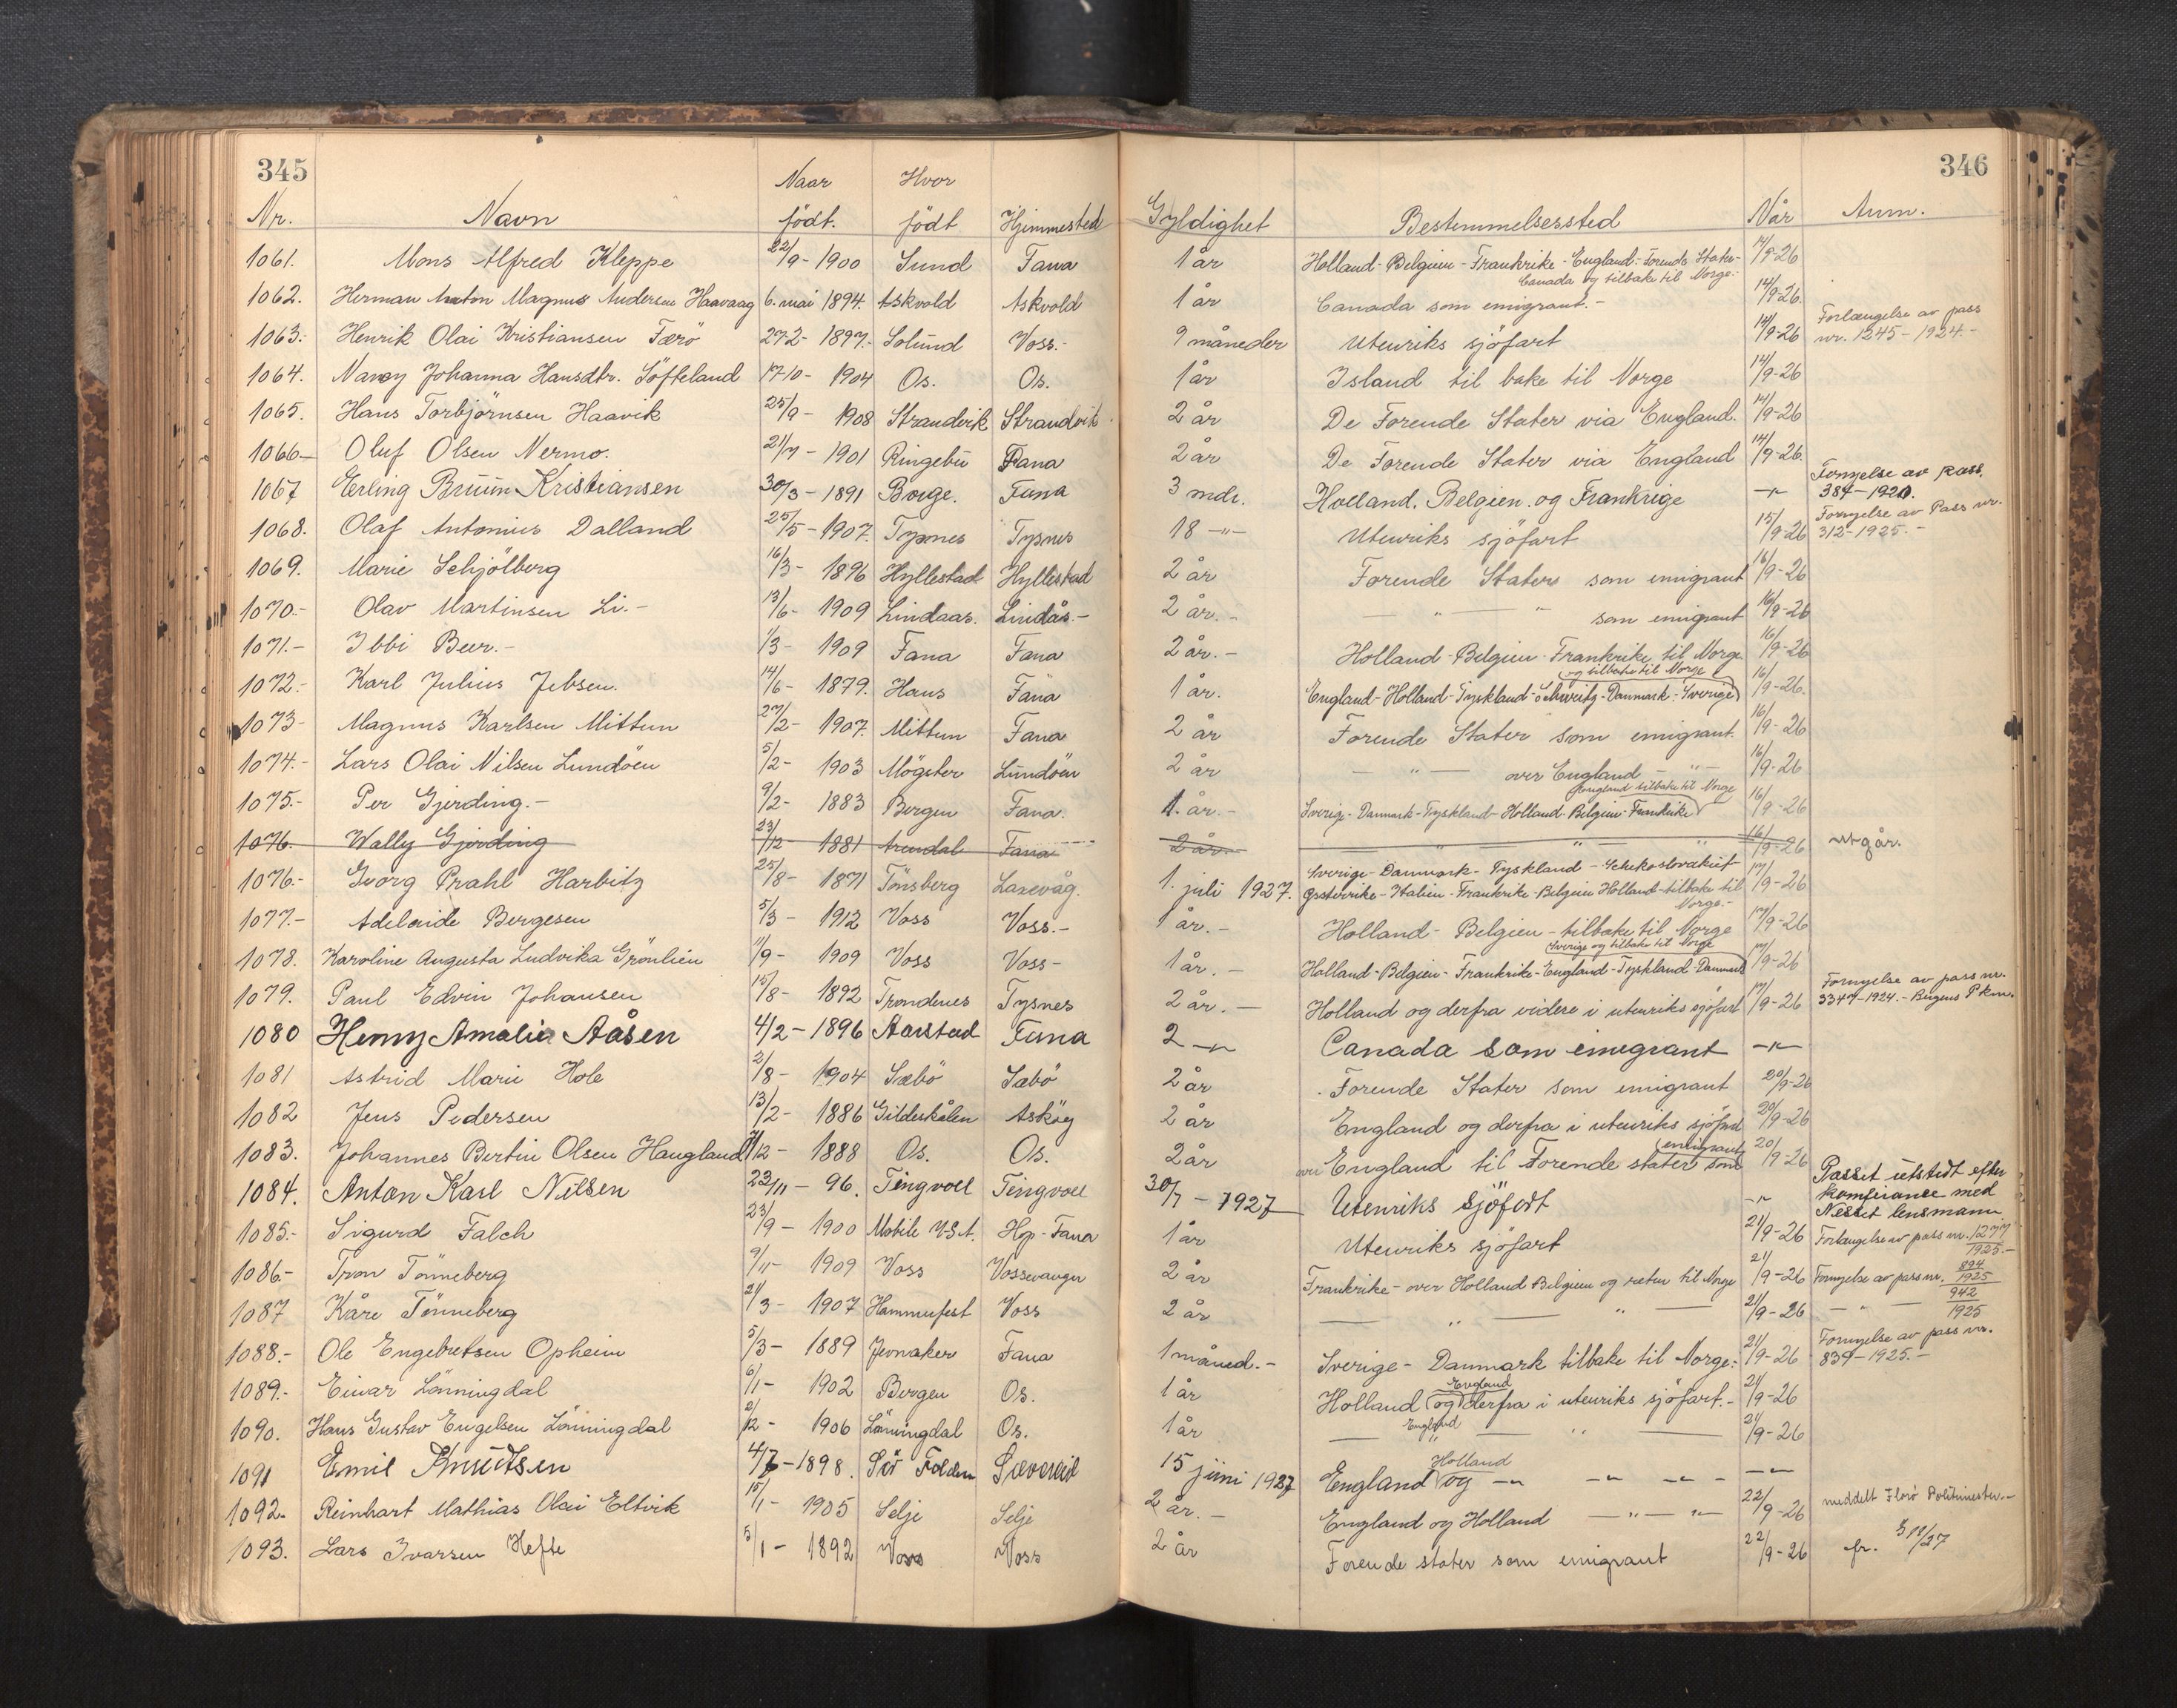 345
346
Nr. Navn Naar födt. Hvor födt Hjemmested Gyldighet Bestemmelsessted Når Anm.
1061. Mons Alfred Kleppe 22/9-1900 Sund Fana 1 år Holland-Belgien-Frankrike-England-Forende Stater-Canada og tilbake til Norge.- 14/9-26
1062. Herman Anton Magnus Andersen Haavaag 6. mai 1894. Askvold Askvold 1 år Canada som emigrant.- 14/9-26.
1063.- Henrik Olai Kristiansen Færö 27-2-1897.- Solund Voss.- 9 måneder Utenriks sjöfart 14/9-26 Forlængelse av pass nr. 1245-1924.-
1064. Nancy Johanna Hansdtr. Söfteland 17-10-1904 Os. Os. 1 år Island til bake til Norge 14/9-26
1065. Hans Torbjörnsen Haavik 25/9-1908 Strandvik Strandvik 2 år De Forende Stater via England. 14/9-26
1066- Oluf Olsen Nermo. 21/7-1901 Ringebu Fana 2 år De Forende Stater via England 14/9-26.
1067 Erling Bruun Kristiansen 30/3-1891 Borge. Fana 3 mdr. Holland. Belgien. og Frankrige -"- Fornyelse av pass. 384-1920.
1068. Olaf Antonius Dalland 25/5-1907. Tysnes Tysnes 18 -"- Utenriks sjöfart 15/9-26 Fornyelse av Pass nr. 312-1925.-
1069. Marie Schjölberg 16/3-1896 Hyllestad Hyllestad 2 år Forende Stater som emigrant 16/9-26
1070.- Olav Martinsen Li.- 13/6-1909 Lindaas. Lindås.- 2 år.- - " - " som emigrant 16/9-26
1071.- Ibbi Beer.- 1/3-1909 Fana Fana 2 år.- Holland-Belgien-Frankrike til Norge 16/9-26
1072.- Karl Julius Jebsen. 14/6-1879. Haus Fana 1 år. England-Holland-Tyskland-Schweitz-Danmark-Sverige og tilbake til Norge 16/9-26.
1073- Magnus Karlsen Mittun 27/2-1907. Mittun Fana 2 år Forende Stater som emigrant. 16/9-26
1074.- Lars Olai Nilsen Lundöen 5/2-1903 Mögster Lundöen 2 år - " - over England - " - 16/9-26
1075.- Per Gjerding.- 9/2-1883 Bergen Fana. 1. år.- Sverige-Danmark-Tyskland-Holland-Belgien-Frankrike England tilbake til Norge 16/9-26
1076.- Wally Gjerding 23/12-1881 Arendal Fana 2 år.- " " 16/9-26 utgår.
1076.- Georg Prahl Harbitz 25/8-1871 Tönsberg Laxevåg. 1. juli 1927. Sverige-Danmark-Tyskland-Schekoslovakiet Östertrike-Italien-Frankrike-Belgien Holland-tilbake til Norge.- 17/9-26
1077.- Adelaide Bergesen 5/3-1912 Voss Voss.- 1 år.- Holland-Belgien-tilbake til Norge 17/9-26
1078. Karoline Augusta Ludvika Grönlien 11/9-1909 Voss Voss- 1 år.- Holland-Belgien-Frankrike-England-Tyskland-Danmark Sverige og tilbake til Norge 17/9-26
1079. Paul Edvin Johansen 15/8-1892 Trondenes Tysnes 2 år.- Holland og derfra videre i utenriks sjöfart 17/9-26 Fornyelse av pass nr. 3347-1924.-Bergens Pkm.
1080 Henny Amalie Aåsen 4/2-1896 Aarstad Fana 2 -"- Canada som emegrant -"-
1081 Astrid Marie Hole 2/8-1904 Sæbö Sæbö 2 år Forende Stater som emigrant 20/9-26
1082 Jens Pedersen 13/2-1886 Gildeskålen Asköy 2 år England og derfra i utenriks sjöfart 20/9-26
1083. Johannes Bertin Olsen Haugland /12-1888 Os. Os. 2 år over England til Forende stater som emigrant 20/9-26
1084. Anton Karl Nilsen 23/11-96. Tingvoll Tingvoll 30/7-1927 Utenriks sjöfart -"- Passet utstedt efter konferance med Nesset lensmann
1085.- Sigurd Falch 23/9-1900 Mobile U.S.A. Hp-Fana 1 år Utenriks sjöfart 21/9-26 Forlængelse av pass nr. 1277/1925.-
1086.- Tron Tönneberg 9/11-1909 Voss Vossevangen 2 år Frankrike-over Holland Belgien og retur til Norge 21/9-26 Fornyelse av pass nr. 894/1925
1087 Kåre Tönneberg 21/3-1907 Hammerfest Voss 2 år - " - " - 21/9-26 - " - 942/1925
1088.- Ole Engebretsen Opheim 5/3-1889 Jevnaker Fana 1 måned.- Sverige-Danmark tilbake til Norge.- 21/9-26 Fornyelse av pass nr. 839-1925.-
1089.- Einar Lönningdal 6/1-1902 Bergen Os. 1 år Holland England og derfra i utenriks sjöfart.- 21/9-26
1090. Hans Gustav Engelsen Lönningdal 2/12-1906 Lönningdal Os. 1 år - England " - " - 21/9-26
1091 Emil Knudtsen 4/7-1898. Sör Folden Sævareid 15 juni 1927 England Holland og -"- -"- -"- - -"-
1092- Reinhart Mathias Olai Eltvik 15/1-1905 Selje Selje 2 år.- England og Holland -"- -"- 22/9-26 meddelt Florö Politimester.-
1093. Lars Ivarsen Hefte 5/1-1892 Voss Voss 2 år Forende stater som emigrant 22/9-26 fr. 3 11/27